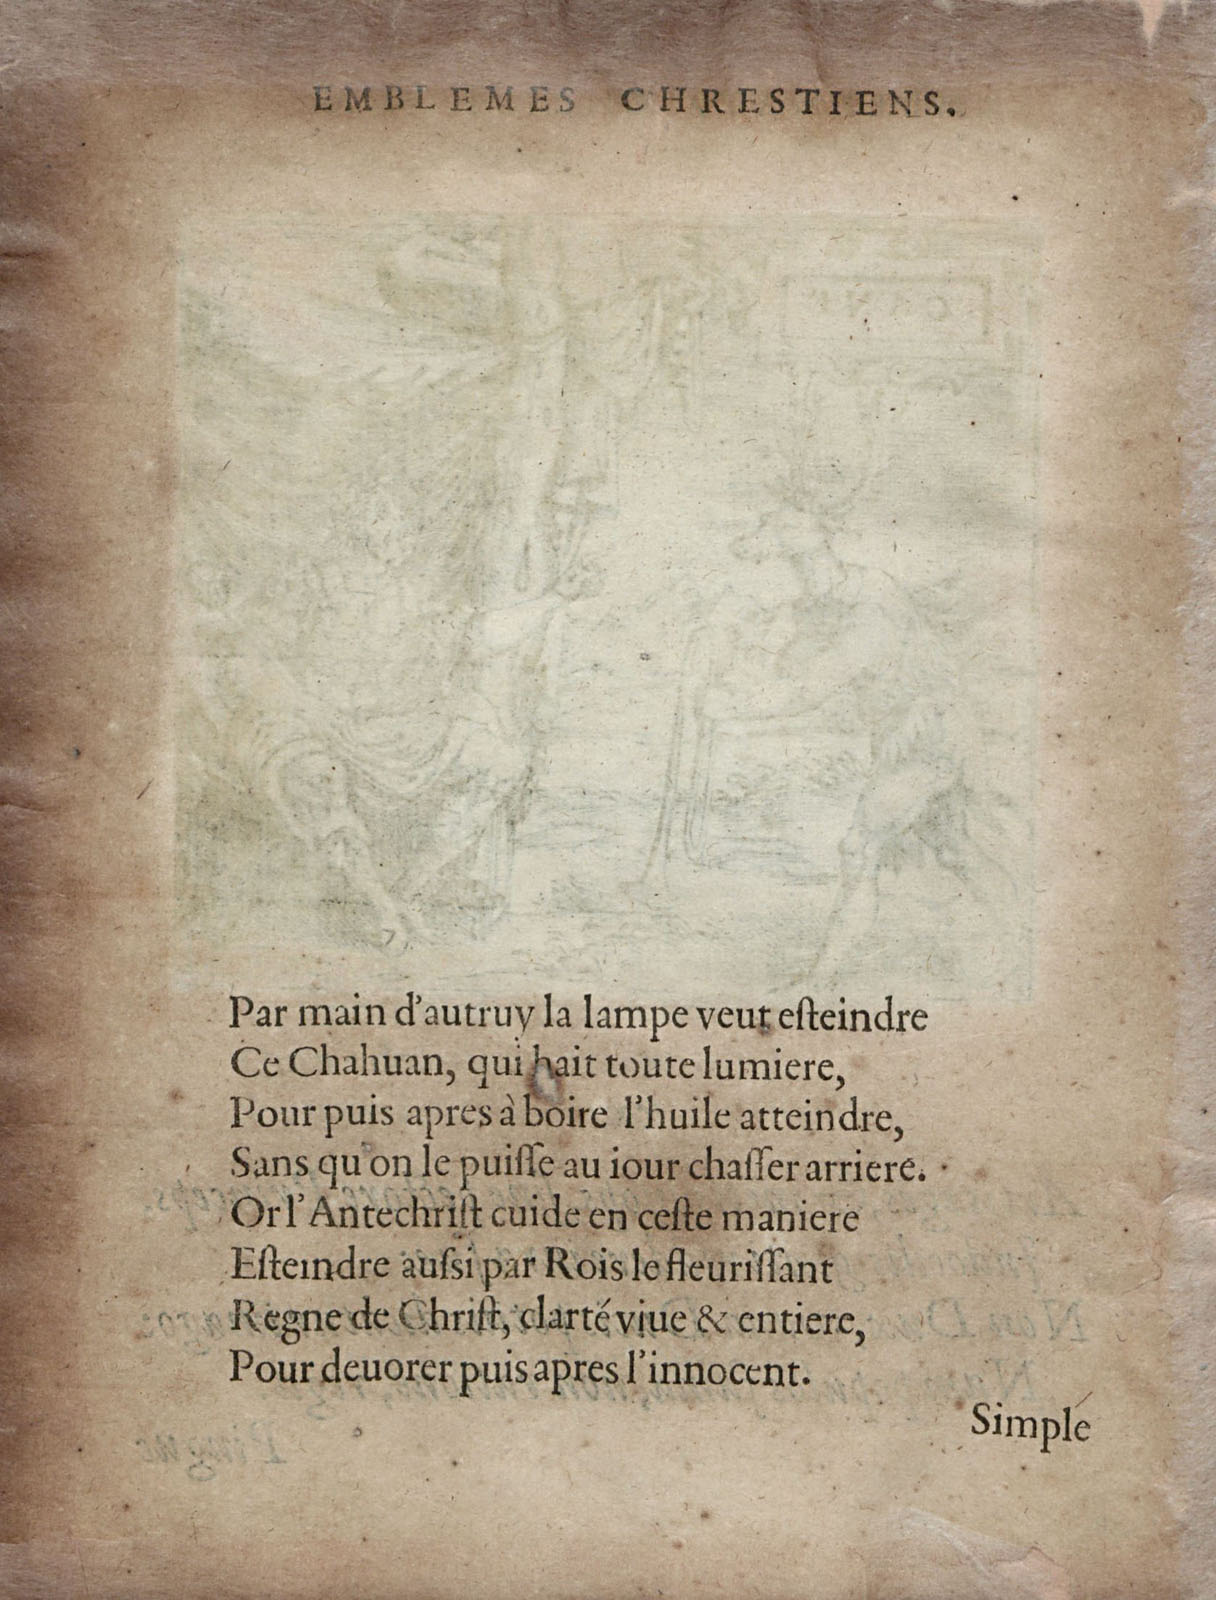 EMBLEMES CHRESTIENS.
Par main d'autruy la lampe veut eſteindre
Ce Chahuan, qui hait toute lumiere,
Pour puis apres à boire l'huile atteindre,
Sans qu'on le puiſſe au iour chaſſer arriere.
Or l'Antechriſt cuide en ceſte maniere
Eſteindre auſsi par Rois le fleuriſſant
Regne de Chriſt, clarté viue & entiere,
Pour deuorer puis apres l'innocent.
Simple